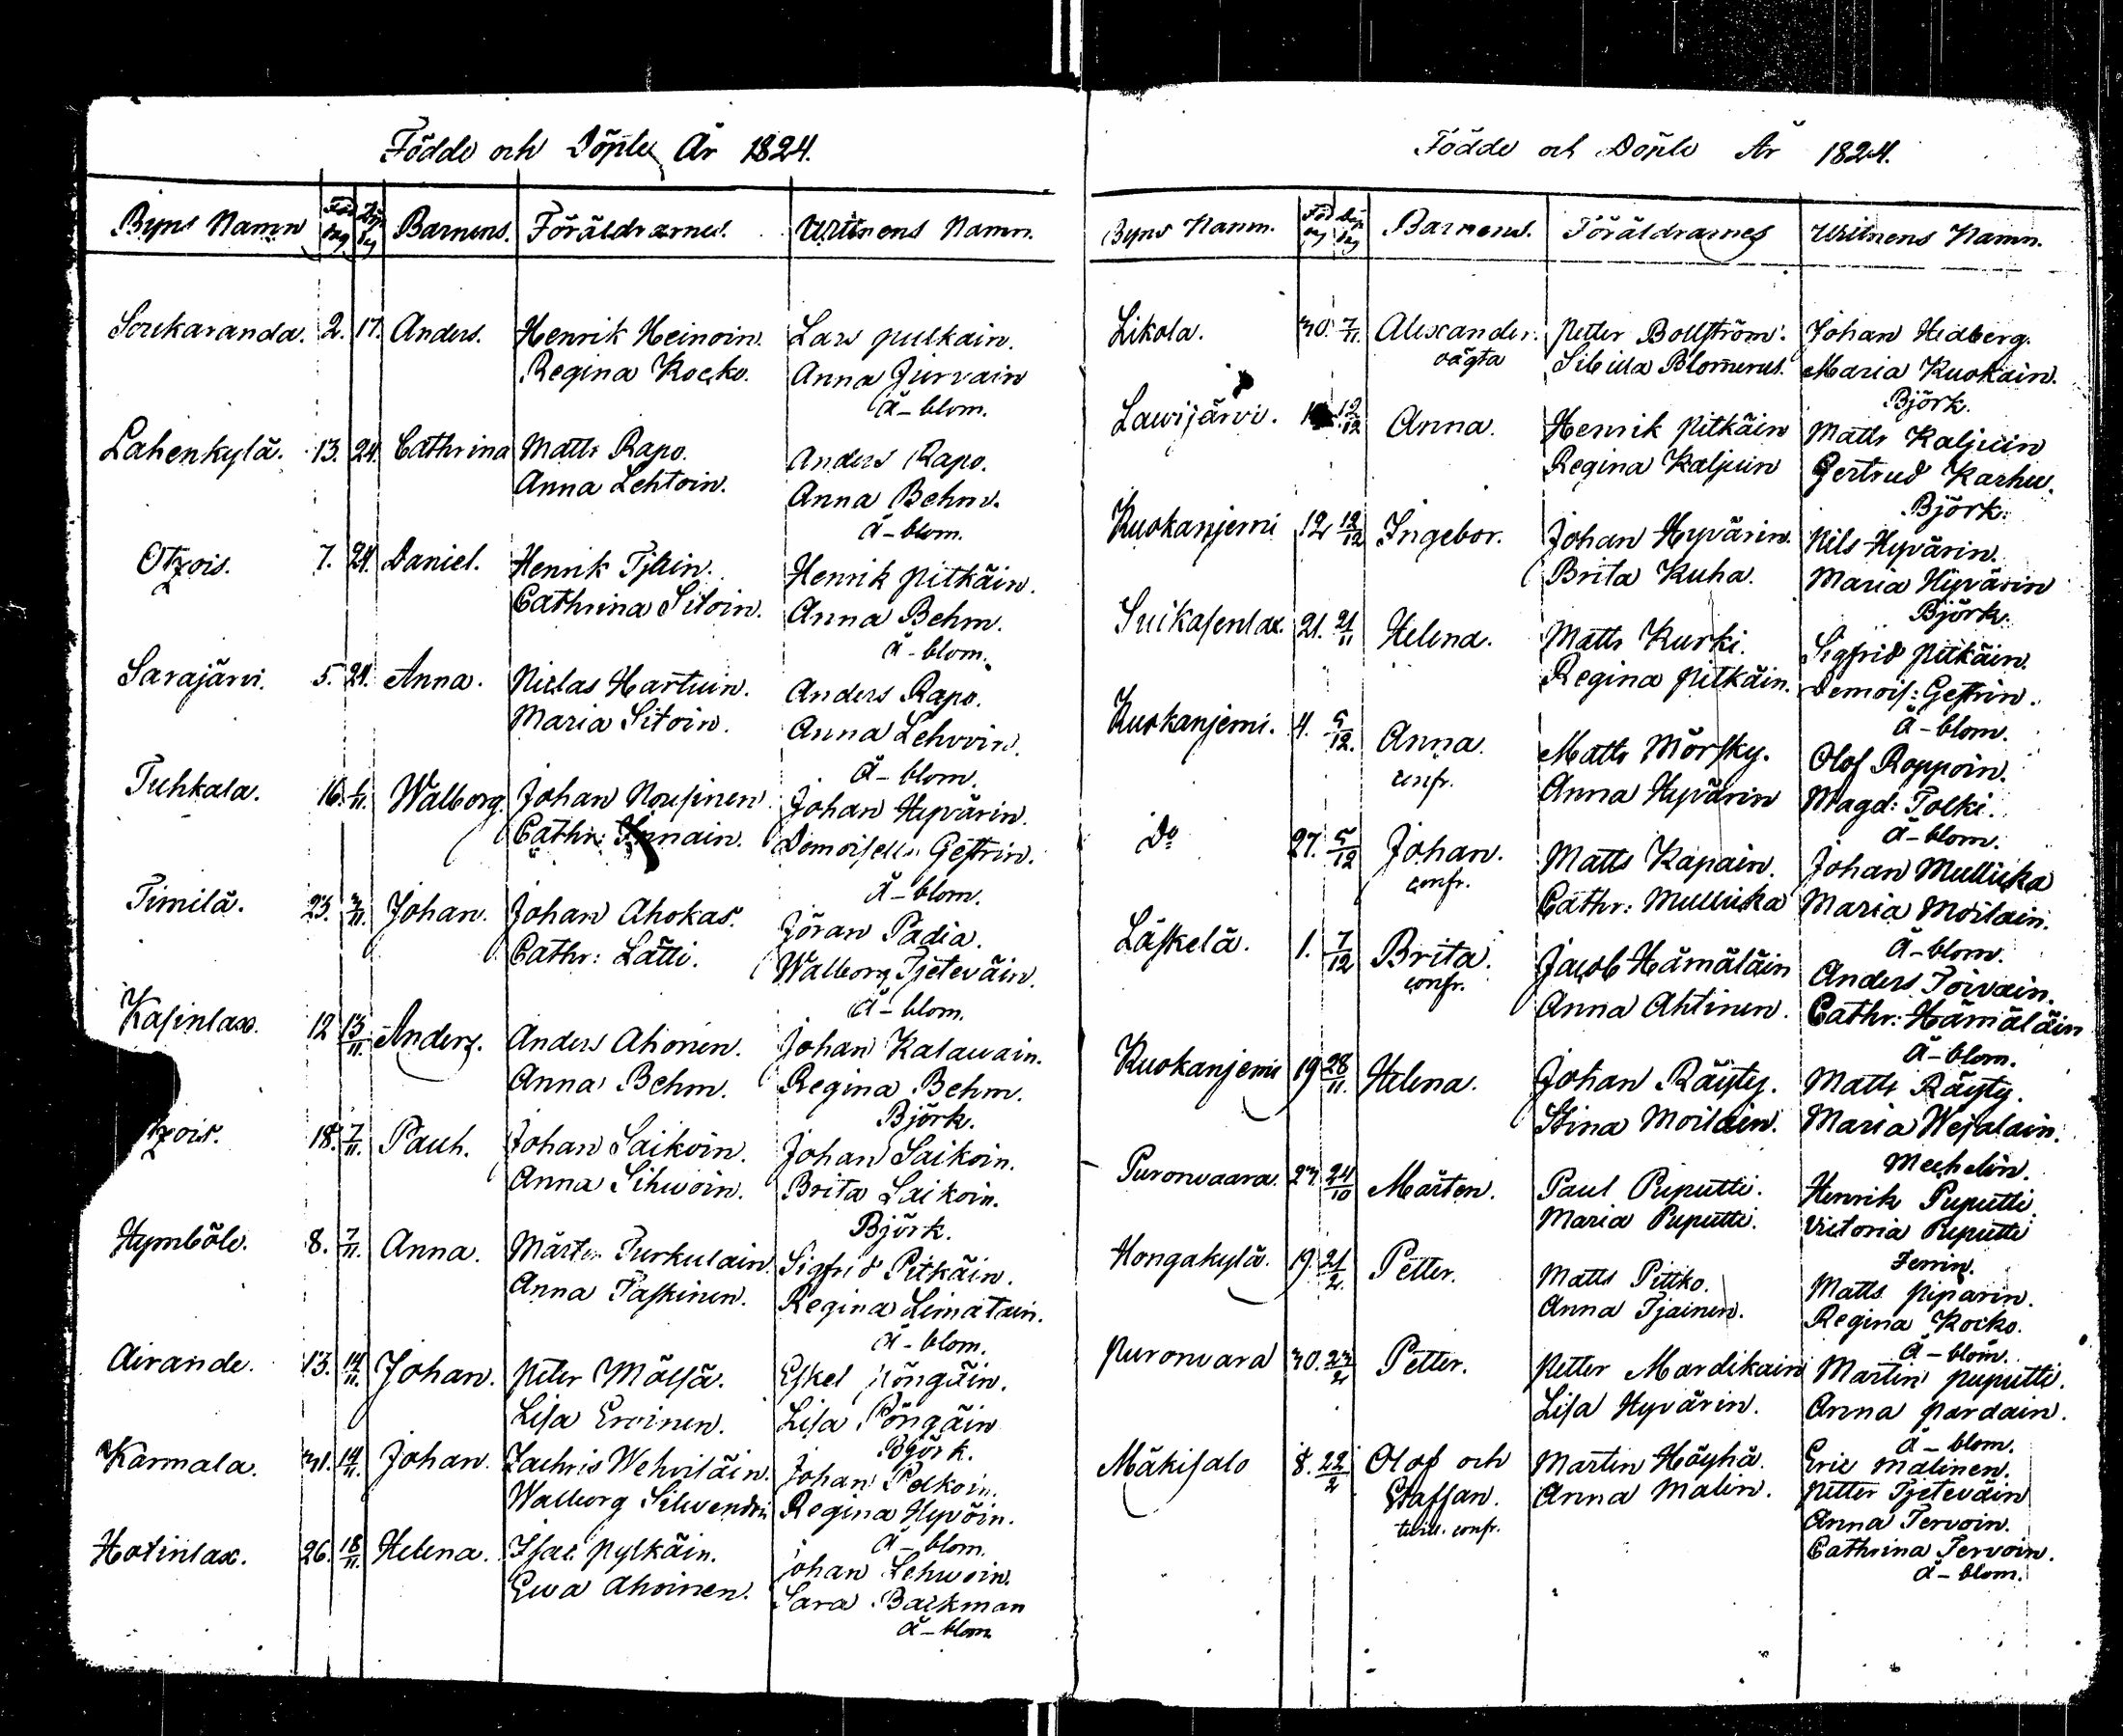 Födde och Döpte År 1824.
Byns Namn Föd dag Döp dag Barnens. Föräldrarnes. Witnens Namn.
Sorikaranda. 2. 17. Anders. Henrik Heinoin. Lars pulkain.
Regina Kocko. Anna Jurvain
Ä-blom.
Lahenkylä. 13. 24. Cathrina Matts Rapo. Anders Rapo.
Anna Lehtoin. Anna Behm.
Ä-blom.
Otzois. 7. 24. Daniel. Henrik Henrik pitkäin.
Cathrina Sitoin. Anna Behm.
Ä-blom.
Sarajärvi. 5. 24. Anna. Niclas Hartuin. Anders Rapo.
Maria Sitoin. Anna Lehvoin.
Ä-blom.
Tuhkala. 16. Walborg. Johan Nousinen Johan Hyvärin.
Cathr: Demoiselle Gestrin.
Ä-blom.
Timilä. 23. 3/11. Johan. Johan Ahokas. Jöran Padia.
Cathr: Lätti. Walborg Tjeteväin.
Ä-blom.
Kasinlax. 12 13/11. Anders. Anders Ahonen. Johan Kalawain.
Anna Behm. Regina Behm.
Björk.
tzois. 18. 7/11. Paul. Johan Saikoin. Johan Saikoin.
Anna Sihwoin. Brita Laikoin.
Björk.
Hymböle. 8. 7/11. Anna. Mårten Turkulain. Sigfrid Pitkäin.
Anna Paskinen. Regina Limatain.
Ä-blom.
Airande. 13. 14/11. Johan. Peter Mälsä. Eskel Pöngäin.
Lisa Eroinen. Lisa Pöngäin
Björk.
Karmala. 31. 14/11. Johan. Zachris Wehviläin. Johan Pelkoin.
Walborg Silvendoin Regina Hyvöin.
Ä-blom.
Hotinlax. 26. 18/11. Helena. Isac pylkäin. Johan Lehwoin.
Ewa Ahoinen. Sara Backman
Ä-blom
Födde och Döpte År 1824.
Byns Namn. Föd dag Döp dag Barnens. Föräldrarnes Witnens Namn.
Likola. 30. 7/11. Alexander. Petter Bollström. Johan Hedberg.
oägta Sibilla Blomerus. Maria Kuokain.
Björk.
Lavijärvi. 12/12 Anna. Henrik Pitkäin Matts Kaljuin
Regina Kaljuin Gertrud Karhu.
Björk.
Kuokanjemi 12 12/12 Ingebor. Johan Hyvärin. Nils Hyvärin.
Brita Kuha. Maria Hyvärin
Björk.
Suikasenlax. 21. 21/11 Helena. Matts Kurki. Sigfrid pitkäin.
Regina pitkäin. Demois: Gestrin.
Ä-blom.
Kuokanjemi. 4. 5/12. Anna. Matts Mörsky. Olof Roppoin.
confr. Anna Hyvärin Magd: Tolki.
Ä-blom.
Do 27. 5/12 Johan. Matts Kapain. Johan Mullikka
confr. Cathr: Mullikka Maria Moilain.
Ä-blom.
Läskelä. 1. 7/12 Brita. Jacob Hämäläin Anders Toivain.
confr. Anna Ahtinen. Cathr: Hämäläin
Ä-blom.
Kuokanjemi 19 28/11. Helena. Johan Räyty. Matts Räyty.
Stina Moilain. Maria Wejalain.
Mechelin.
Puronvaara. 23. 24/10 Mårten. Paul Puputti. Henrik Puputti.
Maria Puputti. Victoria Puputti
Hongakylä. 19. 21/2. Petter. Matts Pitko. Matts piparin.
Anna Tjainen. Regina Kocko.
Ä-blom.
puronvara 30. 23/2 Petter. Petter Mardikain Martin puputti.
Lisa Hyvärin. Anna pardain.
Ä-blom.
Mäkisalo 8. 22/2 Olof och Martin Höyhä. Eric Malinen.
Staffan. Anna Malin. Petter Tjeteväin
confr. Anna Tervoin.
Cathrina Tervoin.
Ä-blom.